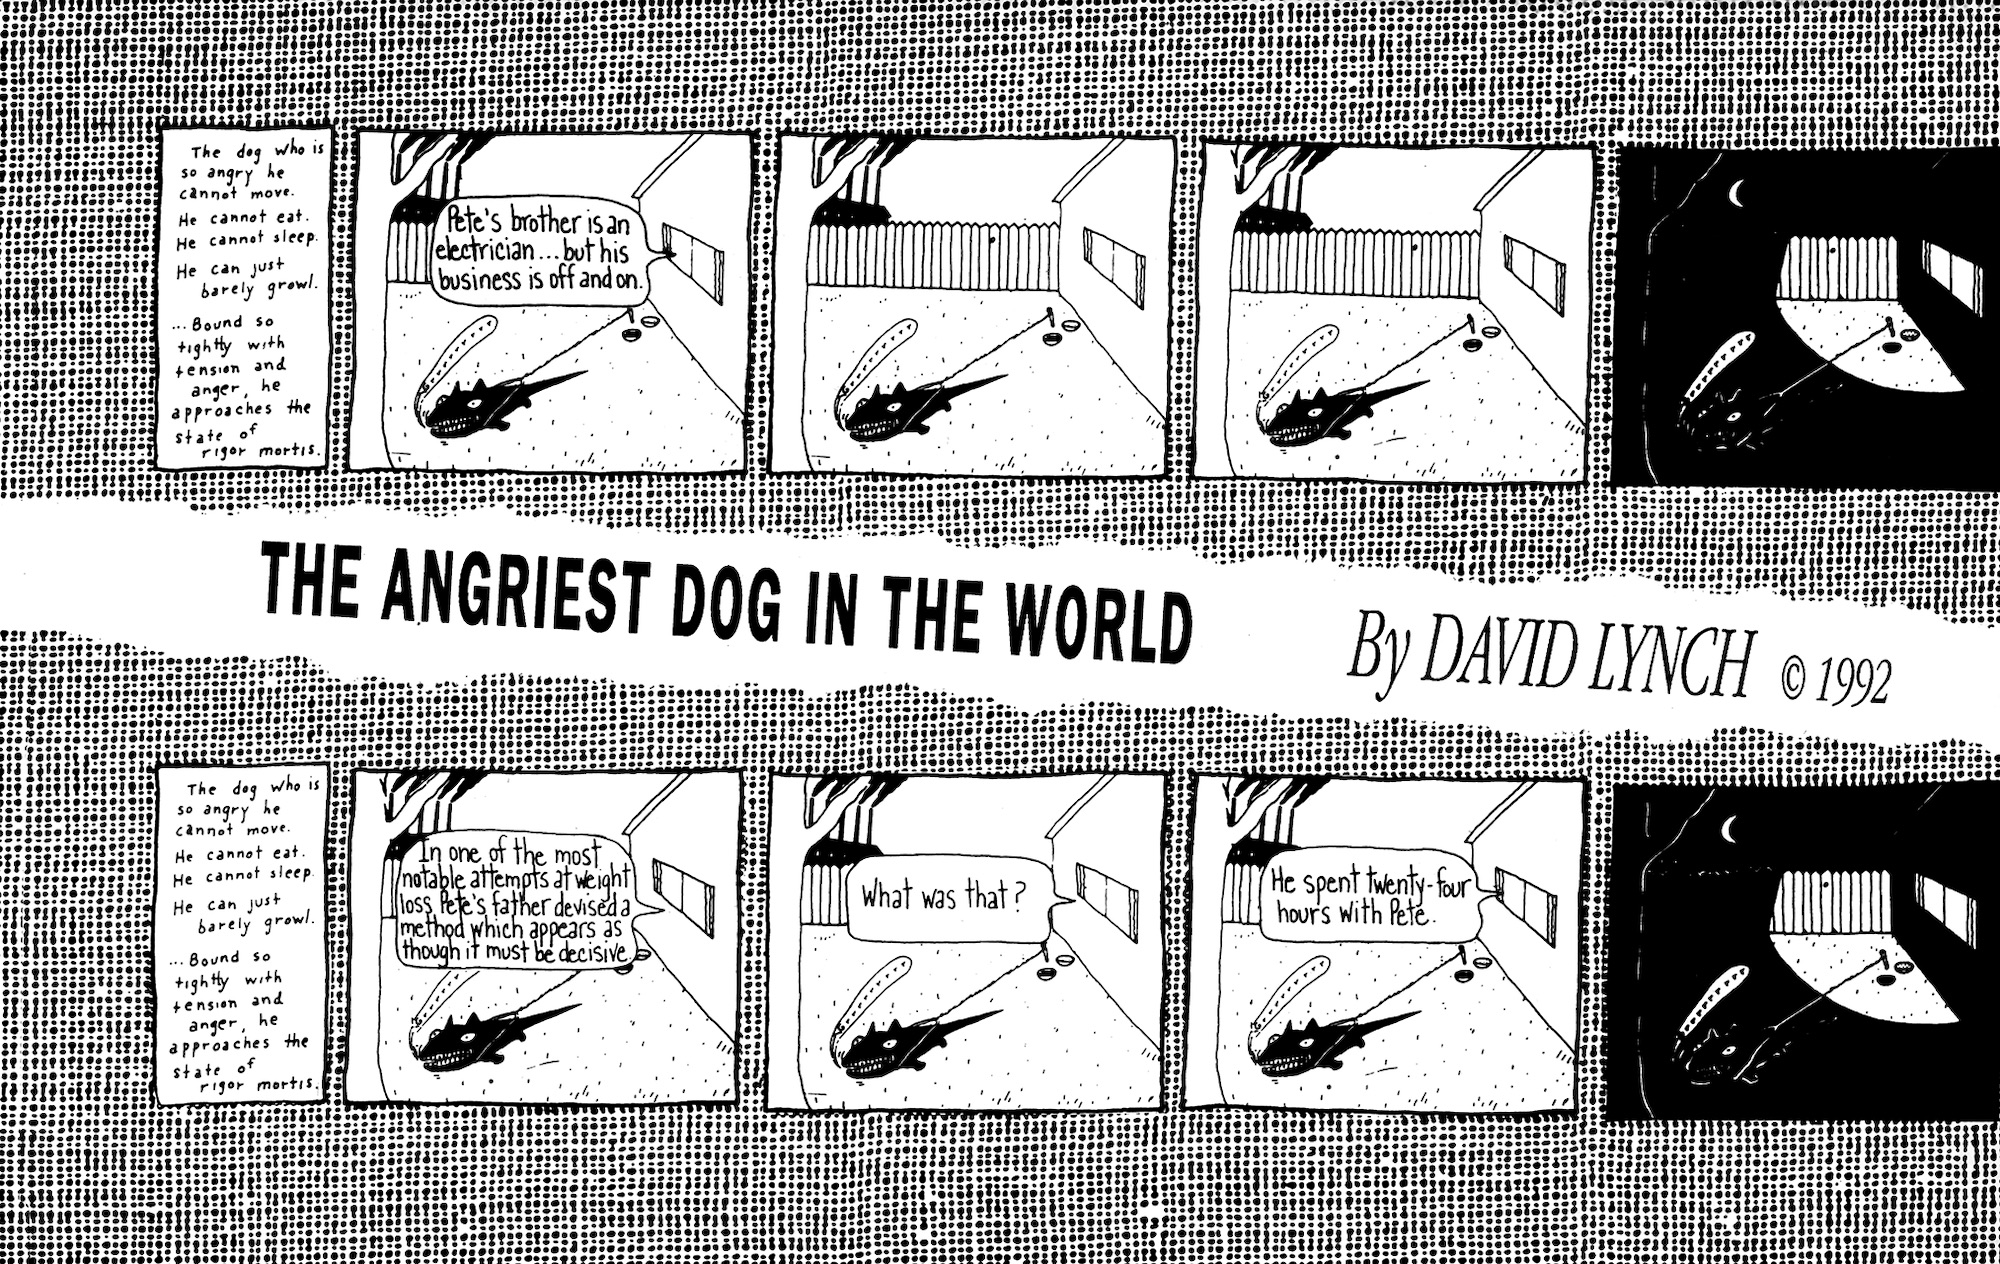 The dog who is
so angry he
cannot move.
He cannot eat.
He cannot sleep.
He can just
barely growl.
...Bound so
tightly with
tension and
anger, he
approaches the
state of
rigor mortis.
Pete's brother is an
electrician...but his
business is off and on.
THE ANGRIEST DOG IN THE WORLD
By DAVID LYNCH © 1992
The dog who is
so angry he
cannot move.
He cannot eat.
He cannot sleep.
He can just
barely growl.
...Bound so
tightly with
tension and
anger, he
approaches the
state of
rigor mortis.
In one of the most
notable attempts at weight
loss Pete's father devised a
method which appears as
though it must be decisive.
What was that?
He spent twenty-four
hours with Pete..